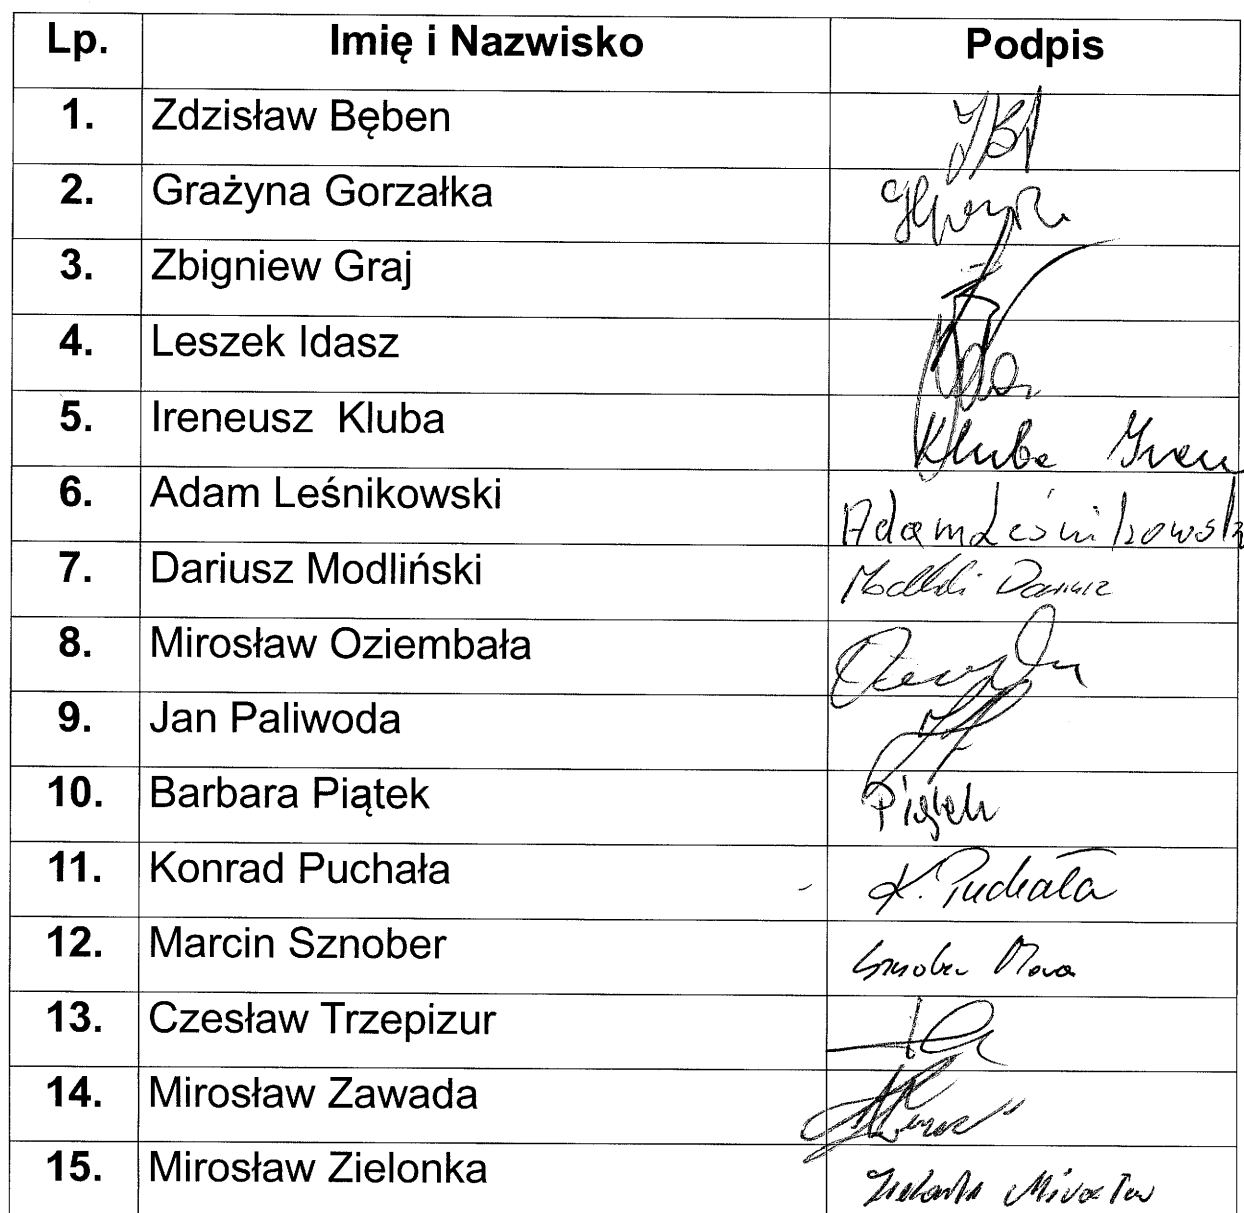 Lp. Imię i Nazwisko Podpis
1. Zdzisław Bęben
2. Grażyna Gorzałka
3. Zbigniew Graj
4. Leszek Idasz
5. Ireneusz Kluba Kluba Iren
6. Adam Leśnikowski Adam Leśnikowski
7. Dariusz Modliński Dariusz
8. Mirosław Oziembała
9. Jan Paliwoda
10. Barbara Piątek Piątek
11. Konrad Puchała K. Puchała
12. Marcin Sznober
13. Czesław Trzepizur
14. Mirosław Zawada
15. Mirosław Zielonka Zielonka Mirosław